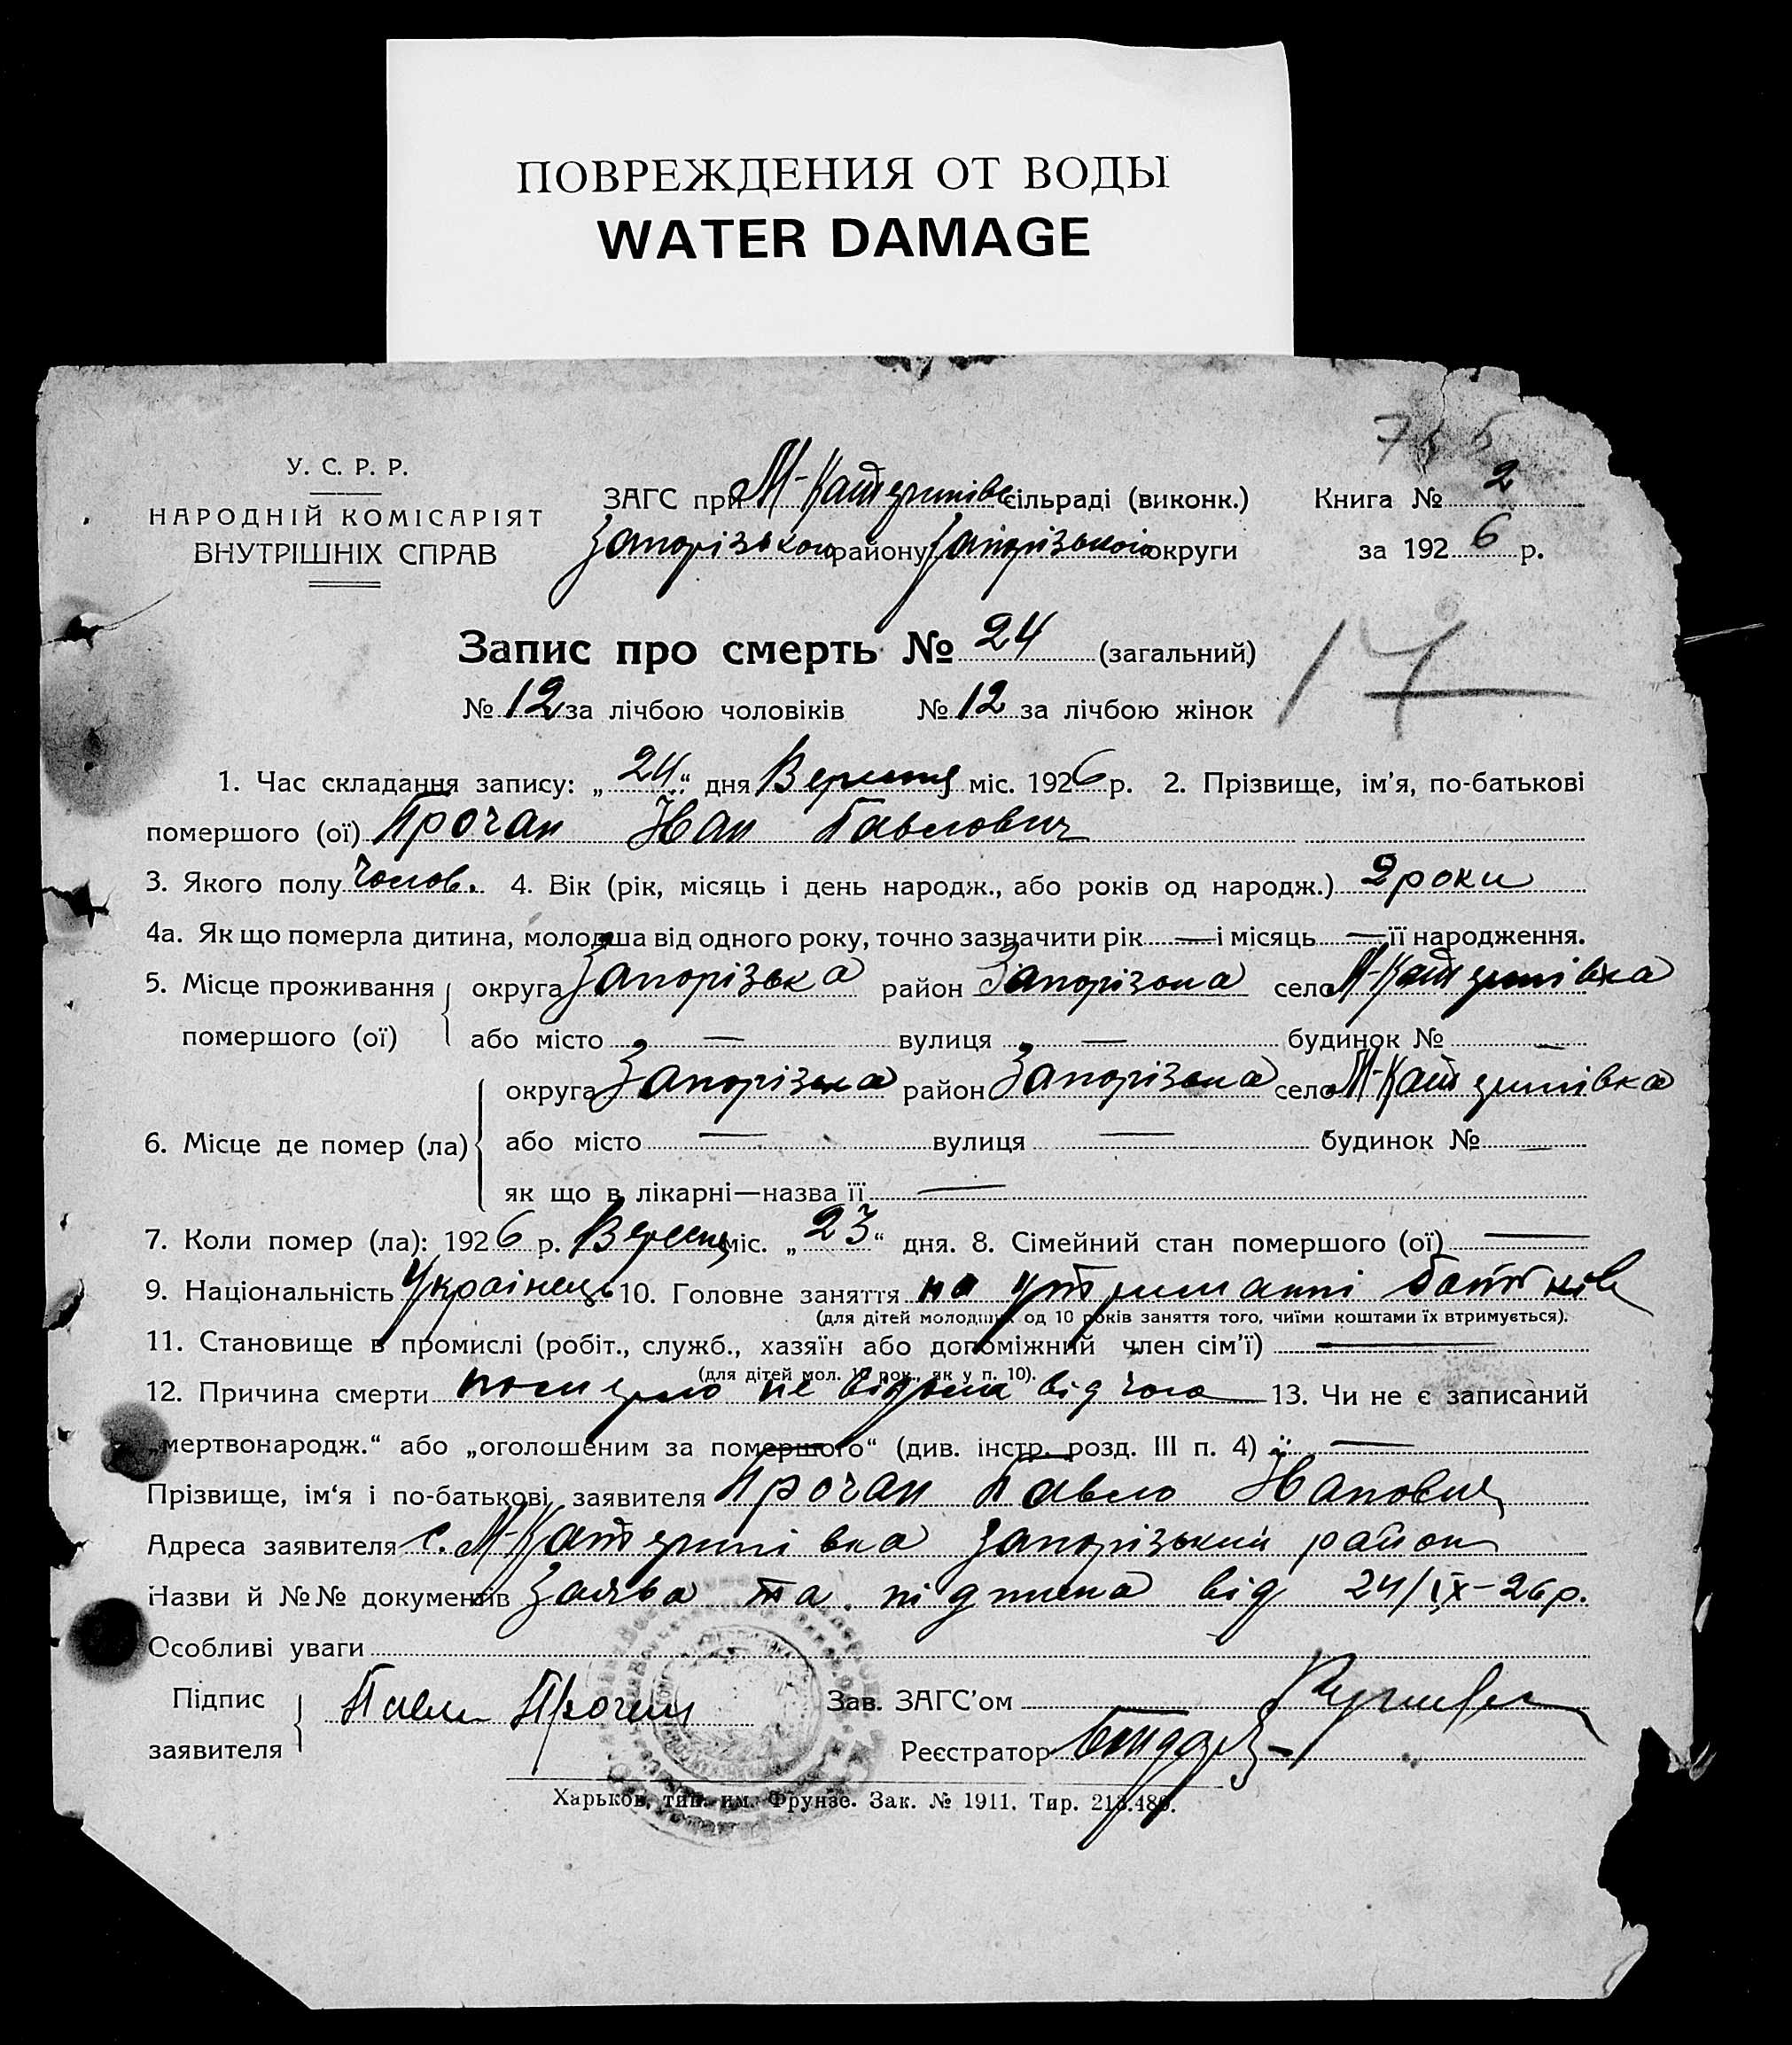 ПОВРЕЖДЕНИЯ ОТ ВОДЫ
WATER DAMAGE
У. С. Р. Р.
НАРОДНІЙ КОМІСАРІЯТ
ВНУТРІШНІХ СПРАВ
ЗАГС при М-Катеринівс сільраді (виконк.)
Запорізького району Запорізької округи
Книга № 2
за 1926 р.
Запис про смерть № 24 (загальний)
17
№ 12 за лічбою чоловіків № 12 за лічбою жінок
1. Час складання запису: „24“ дня Вересня міс. 1926 р. 2. Прізвище, ім'я, по-батькові
помершого (ої) Прочан Іван Павлович
3. Якого полу Чолов. 4. Вік (рік, місяць і день народж., або років од народж.) 2 роки
4а. Як що померла дитина, молодша від одного року, точно зазначити рік — і місяць — її народження.
5. Місце проживання помершого (ої) округа Запорізька район Запорізька село М-Катеринівка
або місто — вулиця — будинок № —
6. Місце де помер (ла) округа Запорізька район Запорізька село М-Катеринівка
або місто — вулиця — будинок № —
як що в лікарні—назва її —
7. Коли помер (ла): 1926 р. Вересня міс. „23“ дня. 8. Сімейний стан помершого (ої) —
9. Національність Українець 10. Головне заняття на утриманні батьків
(для дітей молодших од 10 років заняття того, чиїми коштами їх втримується).
11. Становище в промислі (робіт., служб., хазяїн або допоміжний член сім'ї) —
(для дітей мол. 10 рок., як у п. 10).
12. Причина смерти померло не відомо від чого 13. Чи не є записаний
„мертвонародж.“ або „оголошеним за помершого“ (див. інстр. розд. III п. 4) —
Прізвище, ім'я і по-батькові заявителя Прочан Павло Іванович
Адреса заявителя с. М-Катеринівка Запорізький район
Назви й №№ документів Заява та підписка від 24/IX-26 р.
Особливі уваги
Підпис заявителя Павло Прочан
Зав. ЗАГС'ом
Реєстратор
Харьков, тип. им. Фрунзе. Зак. № 1911. Тир. 213.480.